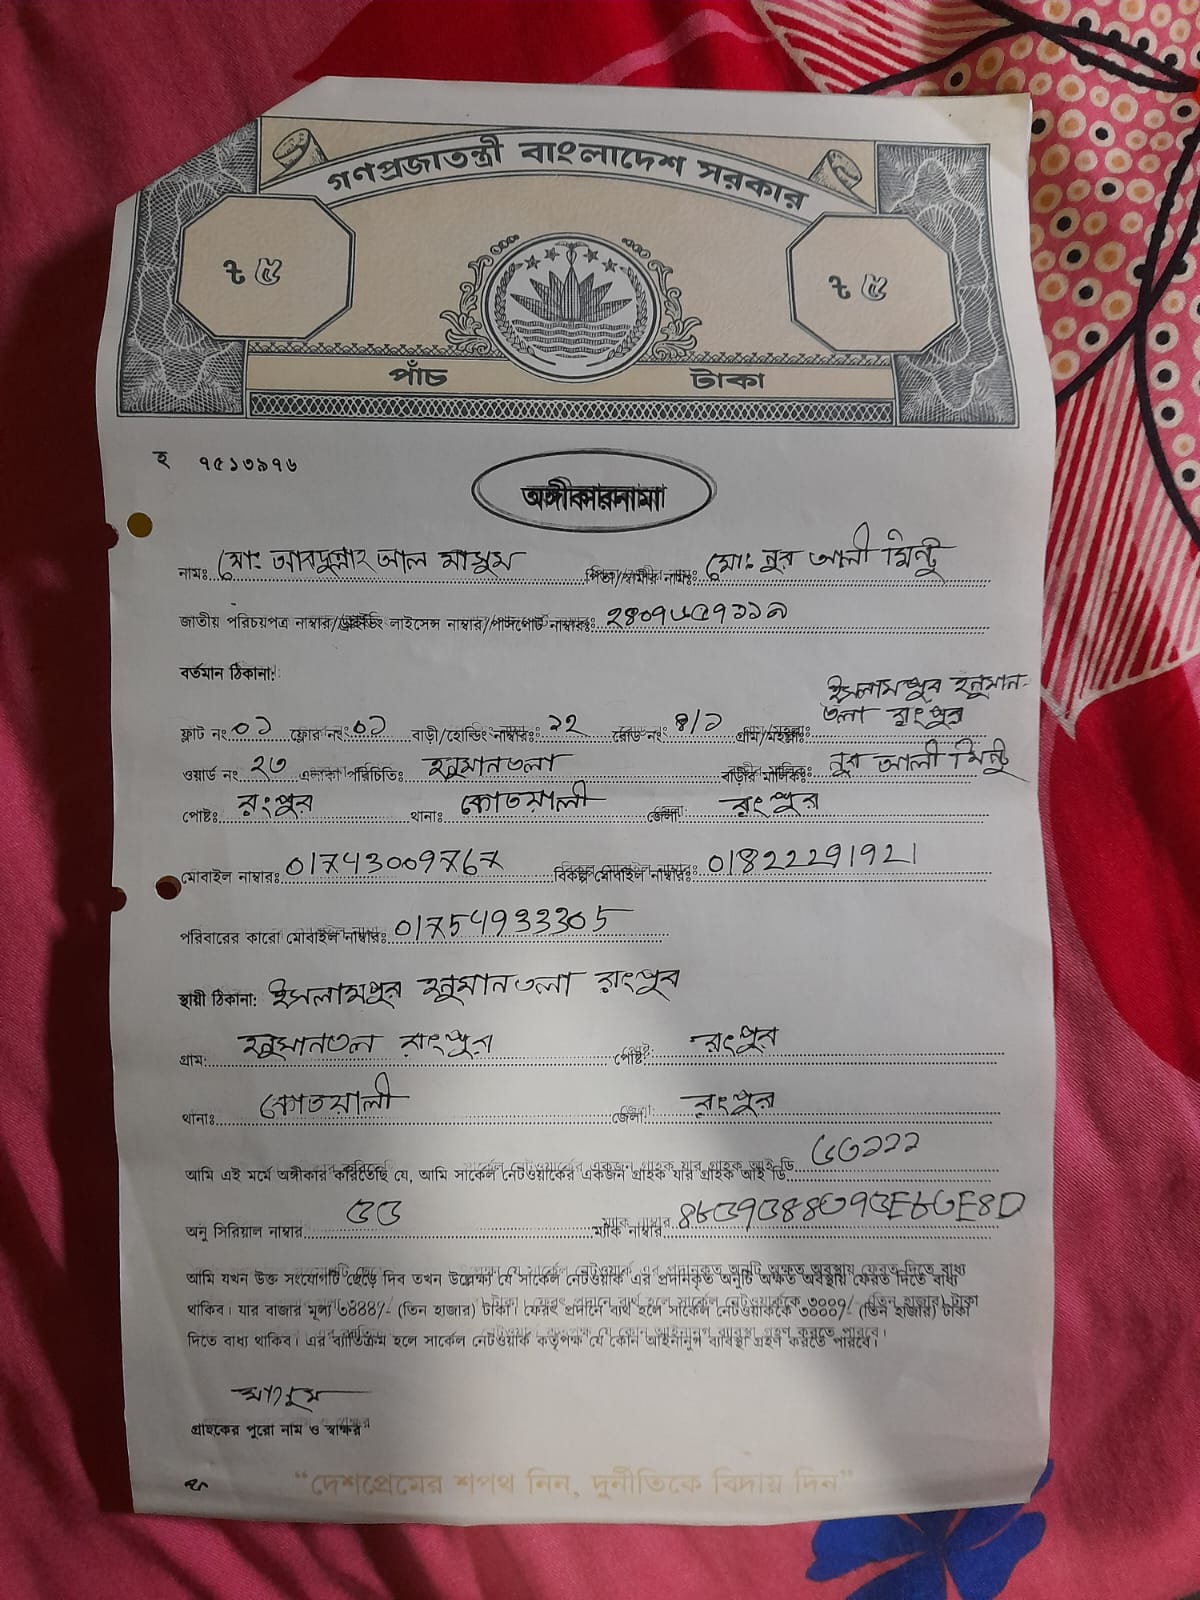 গণপ্রজাতন্ত্রী বাংলাদেশ সরকার
৳ ৫ ৳ ৫
পাঁচ টাকা
হ ৭৫১৩৯৭৬
অঙ্গীকারনামা
নামঃ মোঃ আবদুল্লাহ আল মাসুম পিতা/স্বামীর নামঃ মোঃ নুর আলী মিন্টু
জাতীয় পরিচয়পত্র নাম্বার/ড্রাইভিং লাইসেন্স নাম্বার/পাসপোর্ট নাম্বারঃ ২৪০৭৬৫৭১১৯
বর্তমান ঠিকানা:
ফ্লাট নং ০১ ফ্লোর নং: ০১ বাড়ী/হোল্ডিং নাম্বারঃ ১২ রোড নং ৪/১ গ্রাম/মহল্লাঃ ইসলামপুর হনুমান-
তলা রংপুর
ওয়ার্ড নং ২৩ এলাকা পরিচিতিঃ হনুমানতলা বাড়ীর মালিকঃ নুর আলী মিন্টু
পোষ্টঃ রংপুর থানাঃ কোতয়ালী জেলা: রংপুর
মোবাইল নাম্বারঃ 01743009767 বিকল্প মোবাইল নাম্বারঃ 01822291921
পরিবারের কারো মোবাইল নাম্বারঃ 01754933305
স্থায়ী ঠিকানা: ইসলামপুর হনুমানতলা রংপুর
গ্রাম: হনুমানতলা রংপুর পোষ্ট: রংপুর
থানাঃ কোতয়ালী জেলা: রংপুর
আমি এই মর্মে অঙ্গীকার করিতেছি যে, আমি সার্কেল নেটওয়ার্কের একজন গ্রাহক যার গ্রাহক আই ডি ৬৩১১১
অনু সিরিয়াল নাম্বার ৫৩ ম্যাক নাম্বার
আমি যখন উক্ত সংযোগটি ছেড়ে দিব তখন উল্লেখ্য যে সার্কেল নেটওয়ার্ক এর প্রদানকৃত অনুটি অক্ষত অবস্থায় ফেরত দিতে বাধ্য
থাকিব। যার বাজার মূল্য (তিন হাজার) টাকা। ফেরৎ প্রদানে ব্যর্থ হলে সার্কেল নেটওয়ার্ককে ৩০০০/- (তিন হাজার) টাকা
দিতে বাধ্য থাকিব। এর ব্যতিক্রম হলে সার্কেল নেটওয়ার্ক কর্তৃপক্ষ যে কোন আইনানুগ ব্যবস্থা গ্রহণ করতে পারবে।
মাসুম
গ্রাহকের পুরো নাম ও স্বাক্ষর
"দেশপ্রেমের শপথ নিন, দুর্নীতিকে বিদায় দিন"